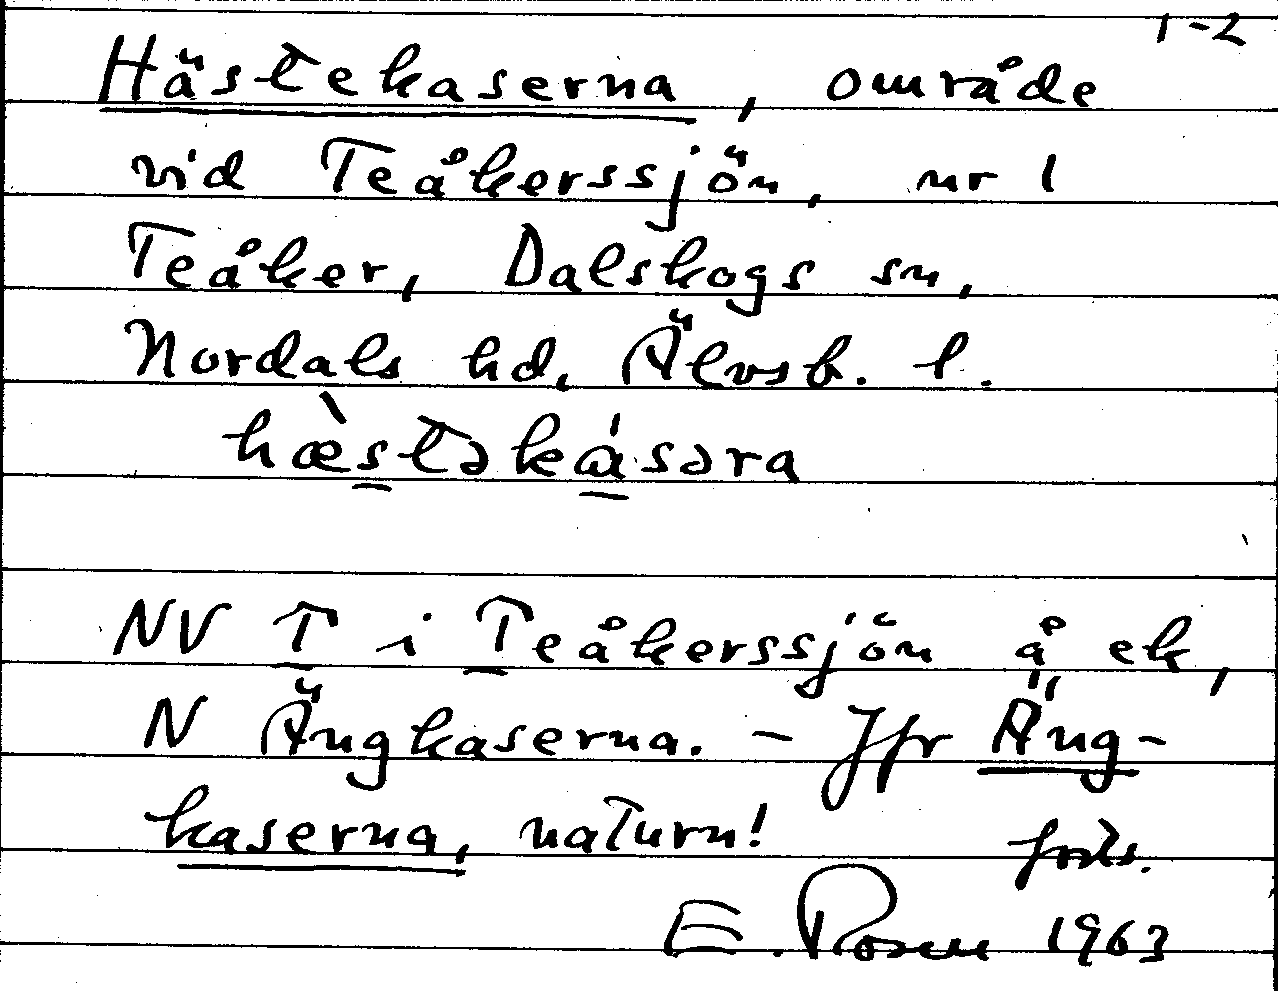 1-2
Hästekaserna, område
vid Teåkerssjön, nr 1
Teåker, Dalskogs sn,
Nordals hd, Älvsb. l.
hæ̀stəkɑ́səra
NV T i Teåkerssjön å ek,
N Ängkaserna. - Jfr Äng-
kaserna, naturn!
forts.
E. Rosen 1963